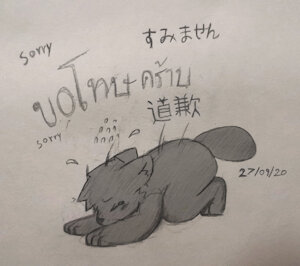 sorry
すみません
ขอโทษคร้าบ
sorry
道歉
27/09/20